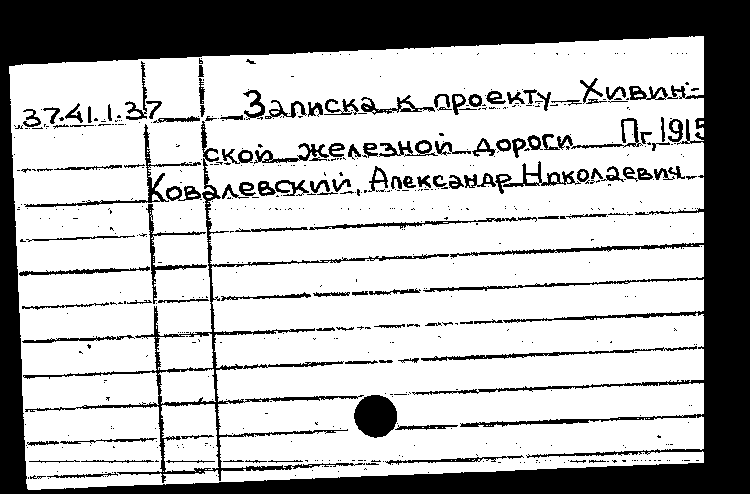 37.41.1.37 Записка к проекту Хивин-
ской железной дороги Пг, 1915
Ковалевский, Александр Николаевич